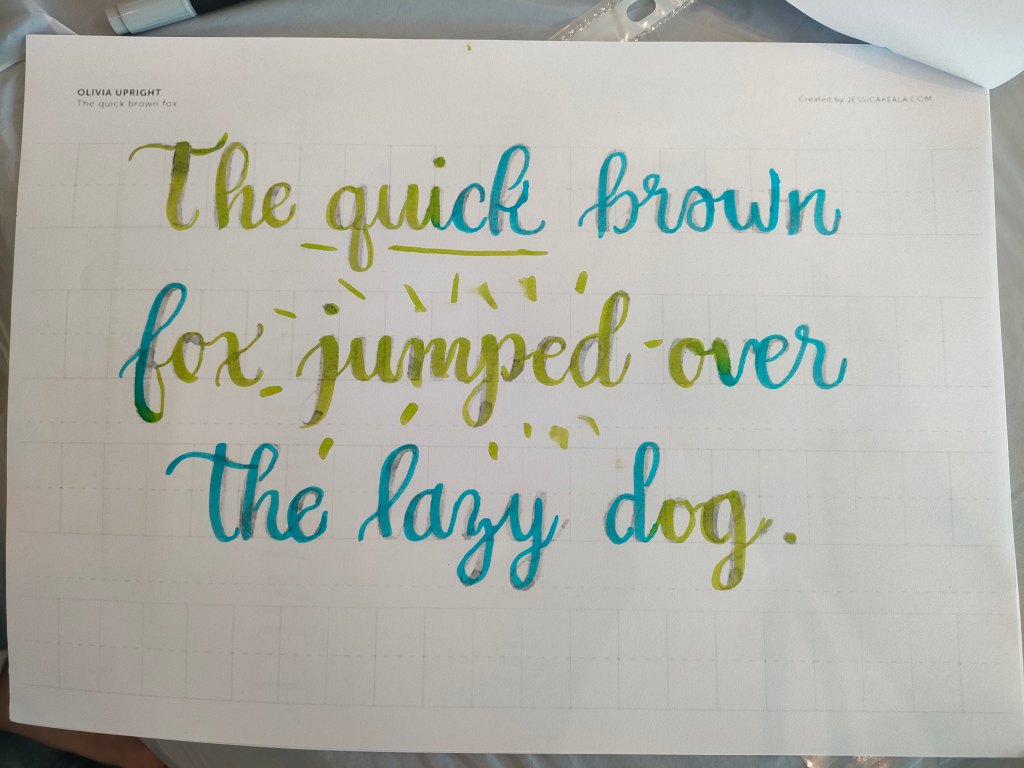 OLIVIA UPRIGHT
The quick brown fox
Created by JESSICAKEALA.COM
The quick brown
fox jumped over
the lazy dog.